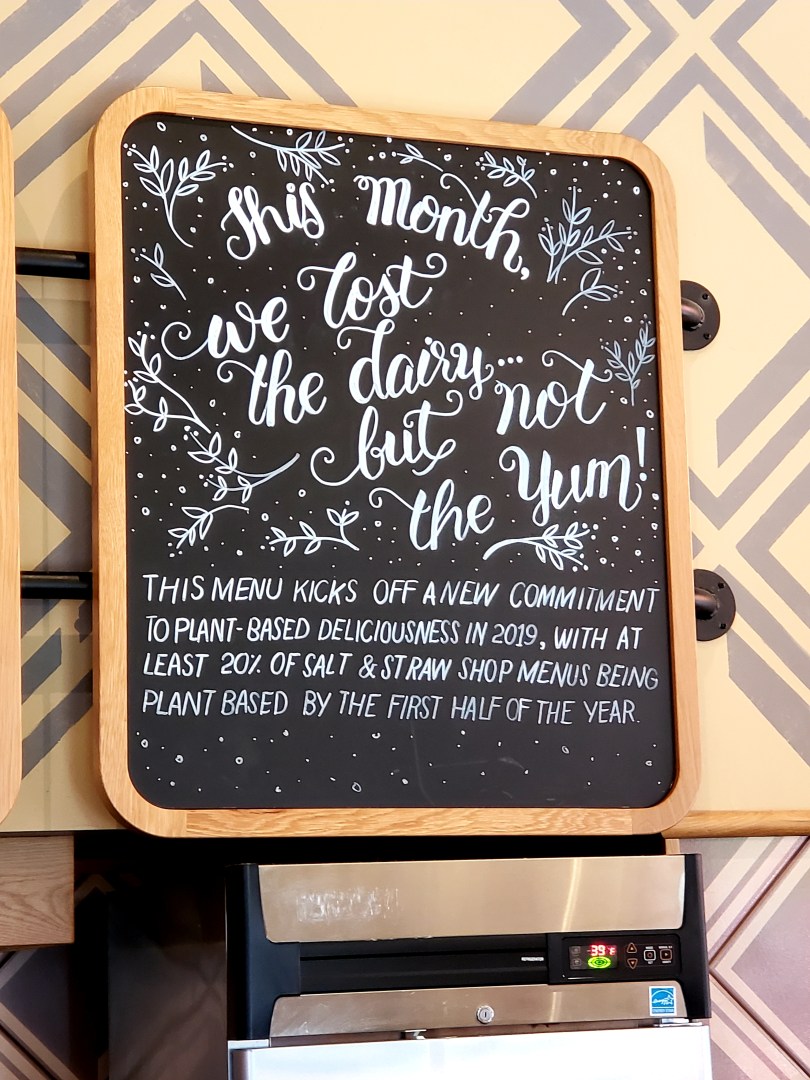 This Month,
we lost
the dairy... not
but
the Yum!
THIS MENU KICKS OFF A NEW COMMITMENT
TO PLANT-BASED DELICIOUSNESS IN 2019, WITH AT
LEAST 20% OF SALT & STRAW SHOP MENUS BEING
PLANT BASED BY THE FIRST HALF OF THE YEAR.
REFRIGERATOR